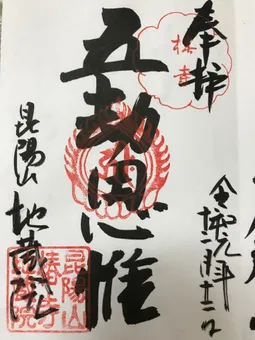 奉拝
椿寺
五劫思惟
令和元年十一月十二日
昆陽山 地蔵院
昆陽山
椿寺
地蔵院